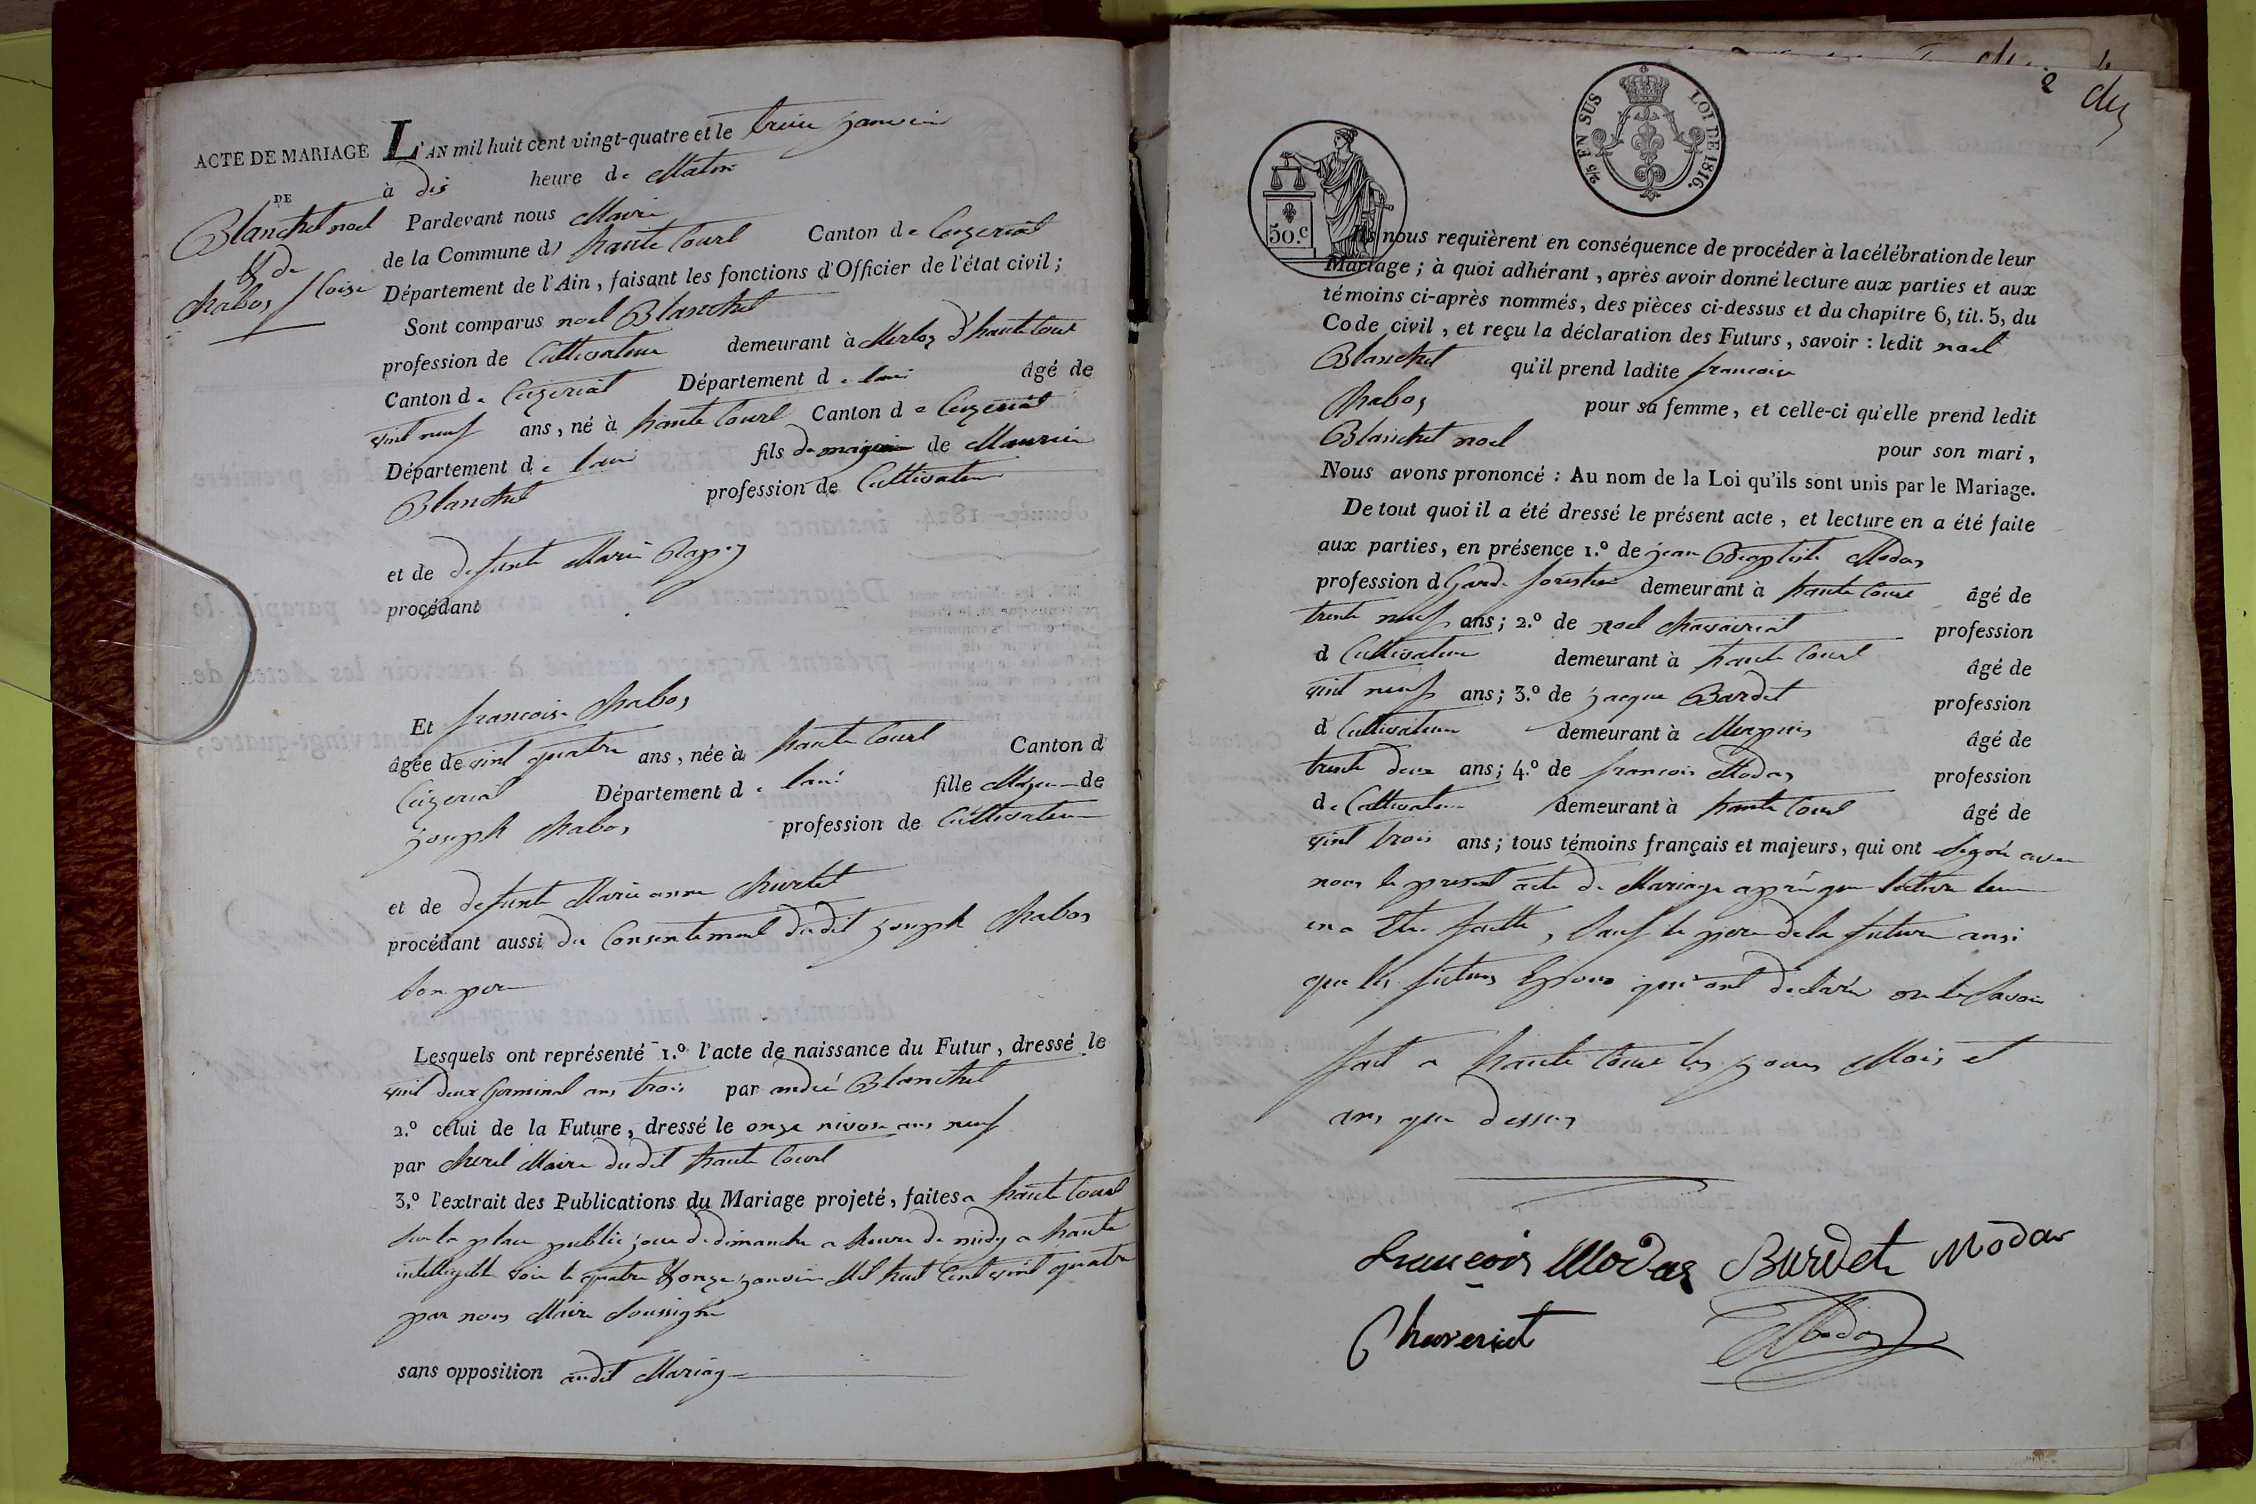 ACTE DE MARIAGE
DE
Blanchet noel
& de
Chabos
L'AN mil huit cent vingt-quatre et le treize janvier
à dis heure de Matin
Pardevant nous Maire
de la Commune d haute Court Canton de Ceyzeriat
Département de l'Ain, faisant les fonctions d'Officier de l'état civil;
Sont comparus noel Blanchet
profession de Cultivateur demeurant à d'haute Court
Canton de Ceyzeriat Département de lain âgé de
vint neuf ans, né à haute Court Canton de Ceyzeriat
Département de lain fils de Maurice
Blanchet profession de Cultivateur
et de defunte Marie
procédant
Et francoise Chabos
âgée de vint quatre ans, née à haute Court Canton d
Ceyzeriat Département de lain fille de
joseph Chabos profession de Cultivateur
et de defunte Marie anne
procédant aussi du Consentement dudit joseph Chabos
son pere
Lesquels ont représenté 1.º l'acte de naissance du Futur, dressé le
vint deux Germinal ans trois par andré Blanchet
2.º celui de la Future, dressé le onze nivose ans neuf
par Maire dudit haute Court
3.º l'extrait des Publications du Mariage projeté, faites a haute Court
sur la place public jour de dimanche a heure de midy a haute
intelligible voix le quatre & onze janvier Mil huit Cent vint quatre
par nous Maire soussigné
sans opposition audit Mariage
2
50.c
2/5 EN SUS
LOI DE 1816.
Ils nous requièrent en conséquence de procéder à la célébration de leur
Mariage; à quoi adhérant, après avoir donné lecture aux parties et aux
témoins ci-après nommés, des pièces ci-dessus et du chapitre 6, tit. 5, du
Code civil, et reçu la déclaration des Futurs, savoir: ledit noel
Blanchet qu'il prend ladite francoise
Chabos pour sa femme, et celle-ci qu'elle prend ledit
Blanchet noel pour son mari,
Nous avons prononcé: Au nom de la Loi qu'ils sont unis par le Mariage.
De tout quoi il a été dressé le présent acte, et lecture en a été faite
aux parties, en présence 1.º de jean Baptiste Modas
profession d Garde forestier demeurant à haute Court âgé de
trente neuf ans; 2.º de noel profession
d Cultivateur demeurant à haute Court âgé de
vint neuf ans; 3.º de jacque Burdet profession
d Cultivateur demeurant à âgé de
trente deux ans; 4.º de francois Modas profession
de Cultivateur demeurant à haute Court âgé de
vint trois ans; tous témoins français et majeurs, qui ont signé avec
nous le present acte de Mariage aprés que lecture leur
en a Eté faitte, sauf le pere de la future ansi
que les futurs Epoux qui ont déclarés ne le savoir
fait a haute Court les jours Mois et
ans que dessus
francois Modas Burdet Modas
Chaveriat Modas